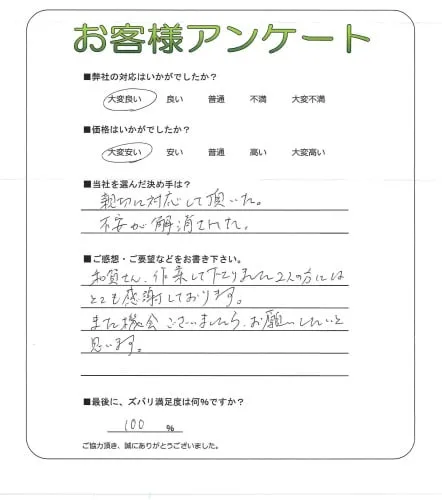 お客様アンケート
■弊社の対応はいかがでしたか？
大変良い 良い 普通 不満 大変不満
■価格はいかがでしたか？
大変安い 安い 普通 高い 大変高い
■当社を選んだ決め手は？
親切に対応して頂いた。
不安が解消された。
■ご感想・ご要望などをお書き下さい。
さん、作業して下さりました2人の方には
とても感謝しております。
また機会ございましたら、お願いしたいと
思います。
■最後に、ズバリ満足度は何%ですか？
100 %
ご協力頂き、誠にありがとうございました。